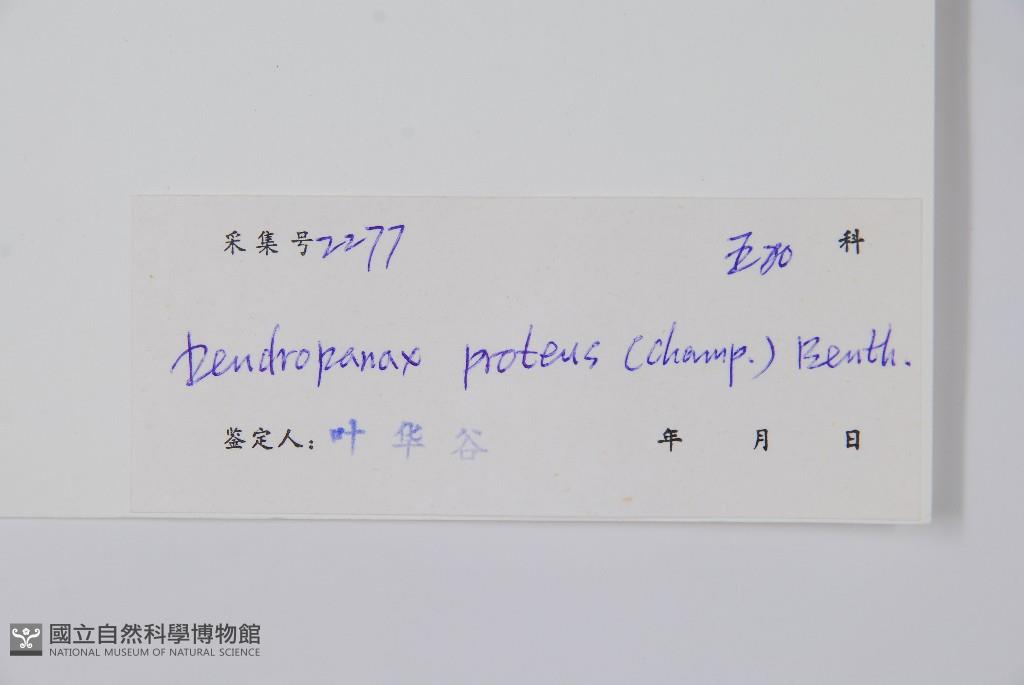 采集号 2277 五加 科
Dendropanax proteus (Champ.) Benth.
鉴定人: 叶华谷 年 月 日
國立自然科學博物館
NATIONAL MUSEUM OF NATURAL SCIENCE